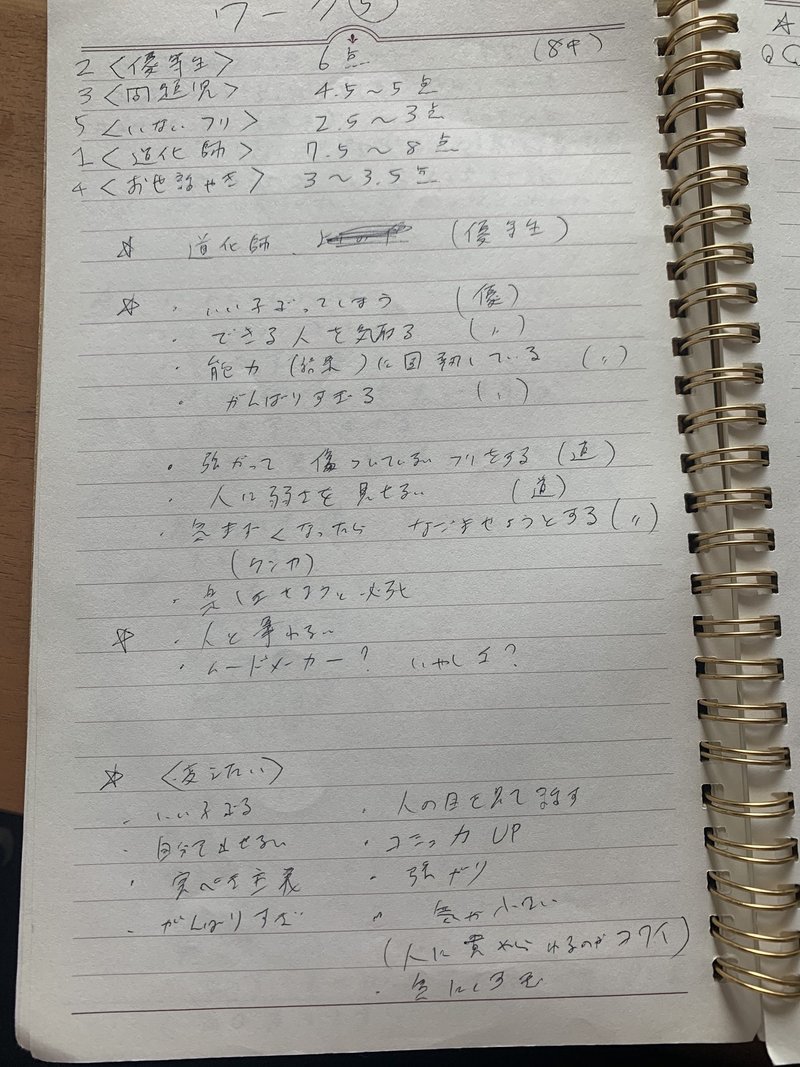 ワーク⑤
2 <優等生> 6点 (8中)
3 <問題児> 4.5〜5点
5 <いないフリ> 2.5〜3点
1 <道化師> 7.5〜8点
4 <お世話やき> 3〜3.5点
☆ 道化師、 (優等生)
☆ ・いい子ぶってしまう (優)
・できる人を気取る (〃)
・能力(結果)に固執している (〃)
・がんばりすぎる (〃)
・強がって 傷ついていないフリをする (道)
・人に弱さを見せない (道)
・気まずくなったら なごませようとする (〃)
(ケンカ)
・必死
☆ ・人と争わない
・ムードメーカー? いやし
☆ <変えたい>
・いい子ぶる ・人の目を見て
・自分で ・コミュ力 UP
・完ぺき主義 ・強がり
・がんばりすぎ ・気が小さい
(人に のがコワイ)
・気にしすぎ